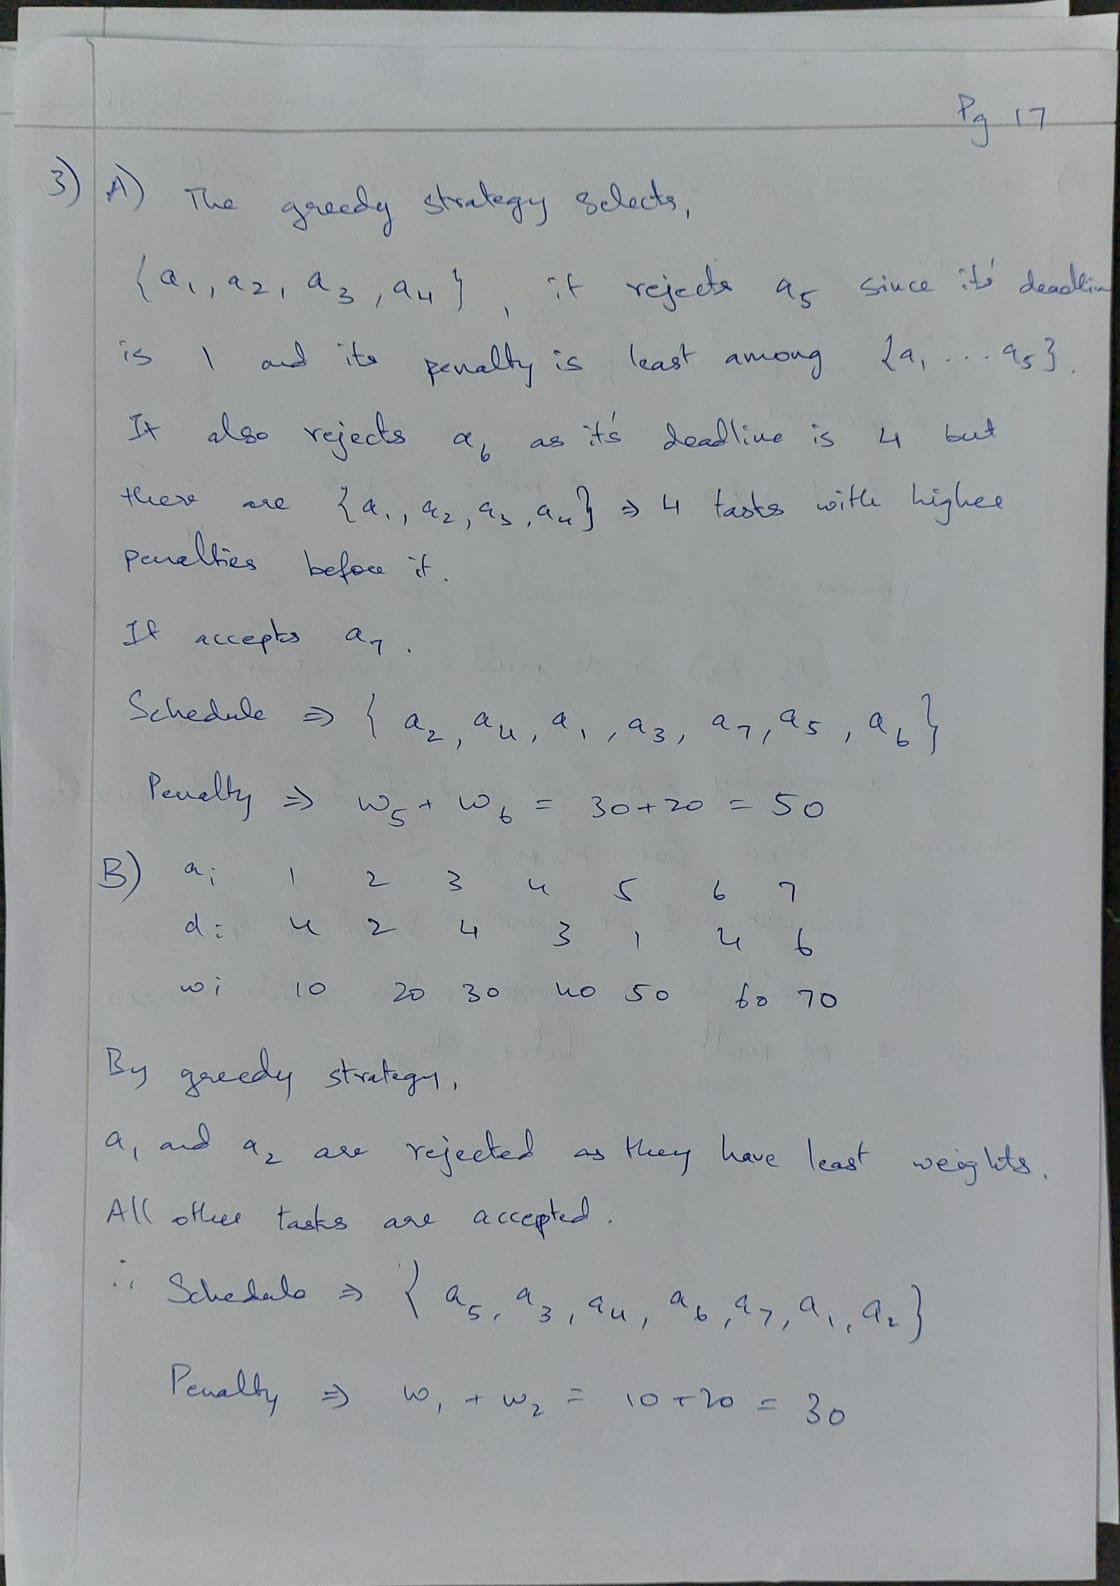 Pg 17
3) A) The greedy strategy selects,
{a1, a2, a3, a4}, it rejects a5 since its' deadlin
is 1 and its penalty is least among {a1 ... a5}.
It also rejects a6 as it's deadline is 4 but
there are {a1, a2, a3, a4} ⇒ 4 tasks with higher
penalties before it.
It accepts a7.
Schedule ⇒ {a2, a4, a1, a3, a7, a5, a6}
Penalty ⇒ w5 + w6 = 30+20 = 50
B) ai 1 2 3 4 5 6 7
di 4 2 4 3 1 4 6
wi 10 20 30 40 50 60 70
By greedy strategy,
a1 and a2 are rejected as they have least weights.
All other tasks are accepted.
∴ Schedule ⇒ {a5, a3, a4, a6, a7, a1, a2}
Penalty ⇒ w1 + w2 = 10+20 = 30